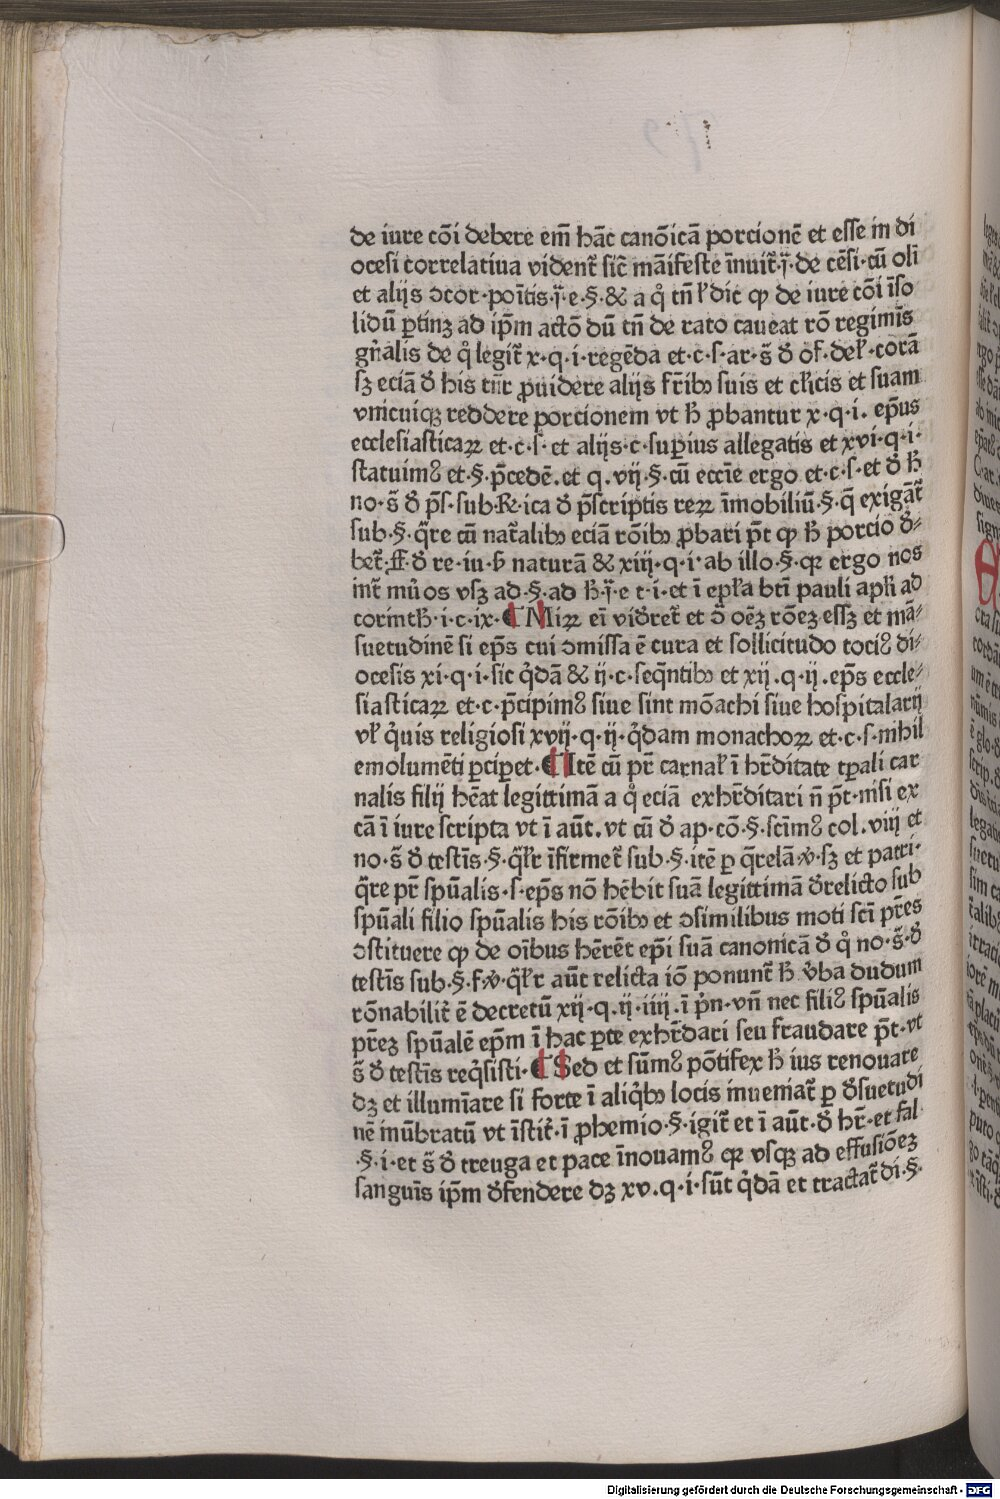 de iure cōi debere em̄ hāc canōicā porcionē et esse in di
ocesi correlatiua vident᷑ sic̄ māifeste īnuit᷑·j̄·de cēsi·cū oli
et alijs ɔcor·poītis·j̄·e·§·& a q̊ tn̄ ł dic̄ ꝙ de iure cōi īso
lidū ꝑtinꝫ ad ip̄m actō dū tn̄ de rato caueat rō regimīs
gn̄alis de q̊ legit᷑ x·q·i·regēda et·c·s·ar·s̄ d̄ of·deł·corā
sꝫ eciā d̄ his tn̄r ꝓuidere alijs fr̄ibꝫ suis et cl̄icis et suam
vnicuiqꝫ reddere porcionem vt h̄ ꝓbantur x·q·i· ep̄us
ecclesiasticaꝝ et·c·s· et alijs·c·suꝑius allegatis et xvi·q·i·
statuimꝰ et·§·p̄cedē·et q·vij·§·cū ecciē ergo et·c·s·et d̄ h̄
no·s̄ d̄ p̄s·sub·R·ica d̄ p̄scriptis reꝝ īmobiliū·§·q̄ exigāt᷑
sub·§·q̄re cū nat᷑alibꝫ eciā rōibꝫ ꝓbari p̄t ꝙ h̄ porcio d̄⸗
bet᷑·ff·d̄ re·iu·b̄ naturā & xiij·q·i·ab illo·§·qꝛ ergo nos
int᷑ mūos vsꝫ ad·§·ad h̄·j̄·e t·i·et ī epł'a bt̄i pauli apłi ad
corinth̄·i·c·ix·¶ Miꝝ eī vid̄ret᷑ et ɔ̄ oēꝫ rōeꝫ essꝫ et mā⸗
suetudinē si ep̄s cui ɔmissa ē cura et sollicitudo tociꝰ di⸗
ocesis xi·q·i·sic q̊dā & ij·c·seq̄ntibꝫ et xij·q·ij·ep̄s eccle⸗
siasticaꝝ et·c·p̄cipimꝰ siue sint mōachi siue hospitalarij
vł q̊uis religiosi xvij·q·ij·q̊dam monachoꝝ et·c·s·nihil
emolumēti ꝑciꝑet·¶ Itē cū pr̄ carnał ī hr̄ditate tꝑali car
nalis filij hēat legittimā a q̊ eciā exhr̄ditari n̄ p̄t·nisi ex
cā ī iure scripta vt ī aūt·vt cū d̄ ap·cō·§·scīmꝰ col·viij et
no·s̄ d̄ testīs·§·q̄łr īfirmet᷑ sub·§·itē ꝑ q̄relā·v̊·sꝫ et patri·
q̄re pr̄ spūalis·s·ep̄s nō hēbit suā legittimā d̄relicto sub
spūali filio spūalis his rōibꝫ et ɔsimilibus moti sc̄i pr̄es
ɔstituere ꝙ de oībus hērēt ep̄i suā canonicā d̄ q̊ no·s̄·d̄
testīs sub·§·f·v̊·q̄łr aūt relicta iō ponunt᷑ h̄ v̊ba dudum
rōnabilit᷑ ē decretū xij·q·ij·iiij·ī p̊n·vn̄ nec filiꝰ spūalis
pr̄eꝫ spūalē ep̄m ī hac ꝑte exhr̄dari seu fraudare p̄t·vt
s̄ d̄ testīs req̊sisti·¶ Sed et sūmꝰ pōtifex h̄ ius renouare
dꝫ et illumīare si forte ī aliq̊bꝫ locis inueniat᷑ ꝑ d̄suetudi
nē inūbratū vt īstit᷑·ī ꝓhemio·§·igit᷑ et ī aūt·d̄ hr̄·et fal·
·§·i·et s̄ d̄ treuga et pace īnouamꝰ qꝛ vsqꝫ ad effusiōeꝫ
sanguīs ip̄m d̄fendere dꝫ xv·q·i·sūt q̊dā et tractat᷑ di·§·
Digitalisierung gefördert durch die Deutsche Forschungsgemeinschaft - DFG